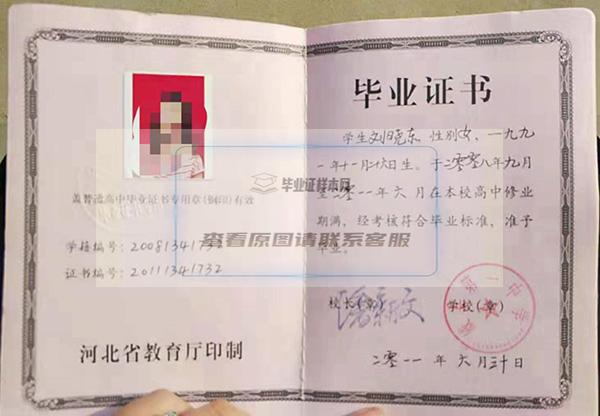 盖普通高中毕业证书专用章(钢印)有效
学籍编号: 20081341732
证书编号: 20111341732
河北省教育厅印制
毕业证书
学生刘晓东 性别女, 一九九
一年十一月廿八日生。于二零零八年九月
至二零一一年六月在本校高中修业
期满, 经考核符合毕业标准, 准予
毕业。
校长(章)
学校(章)
二零一一年六月三十日
毕业证样本网
查看原图请联系客服